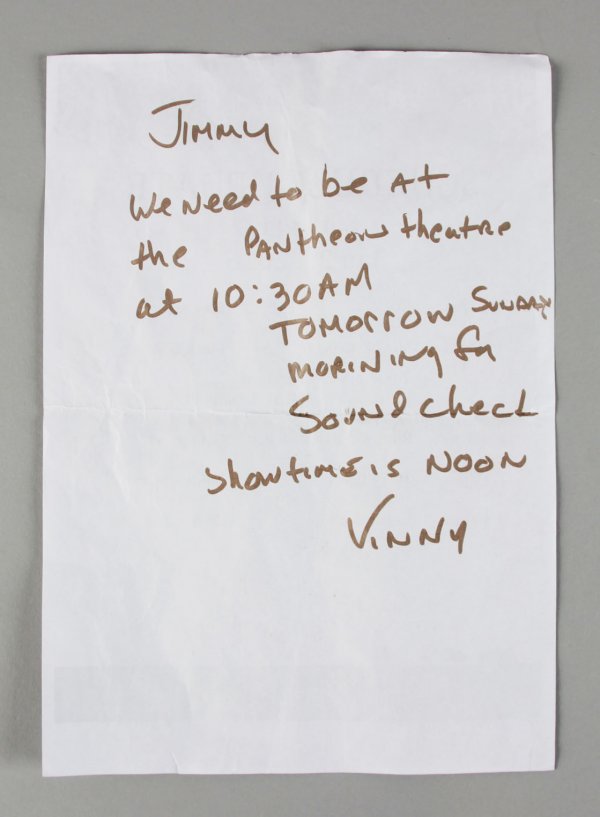 Jimmy
We need to be at
the Pantheon theatre
at 10:30AM
TOMORROW SUNDAY
MORINING for
Sound check
showtime is NOON
Vinny